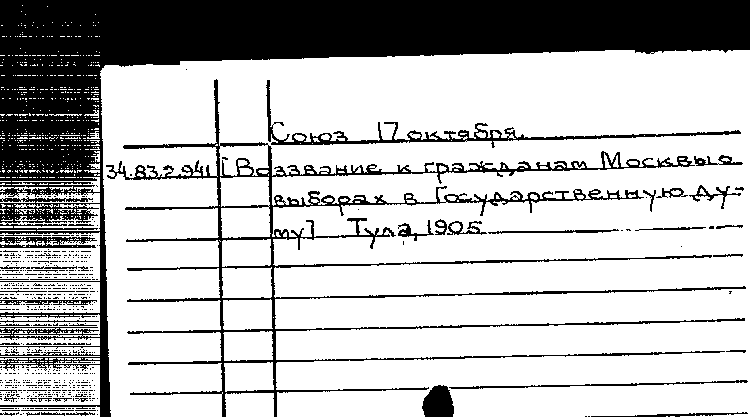 Союз 17 октября.
34.83.2.941 [Воззвание к гражданам Москвы о
выборах в Государственную Ду-
му] Тула, 1905